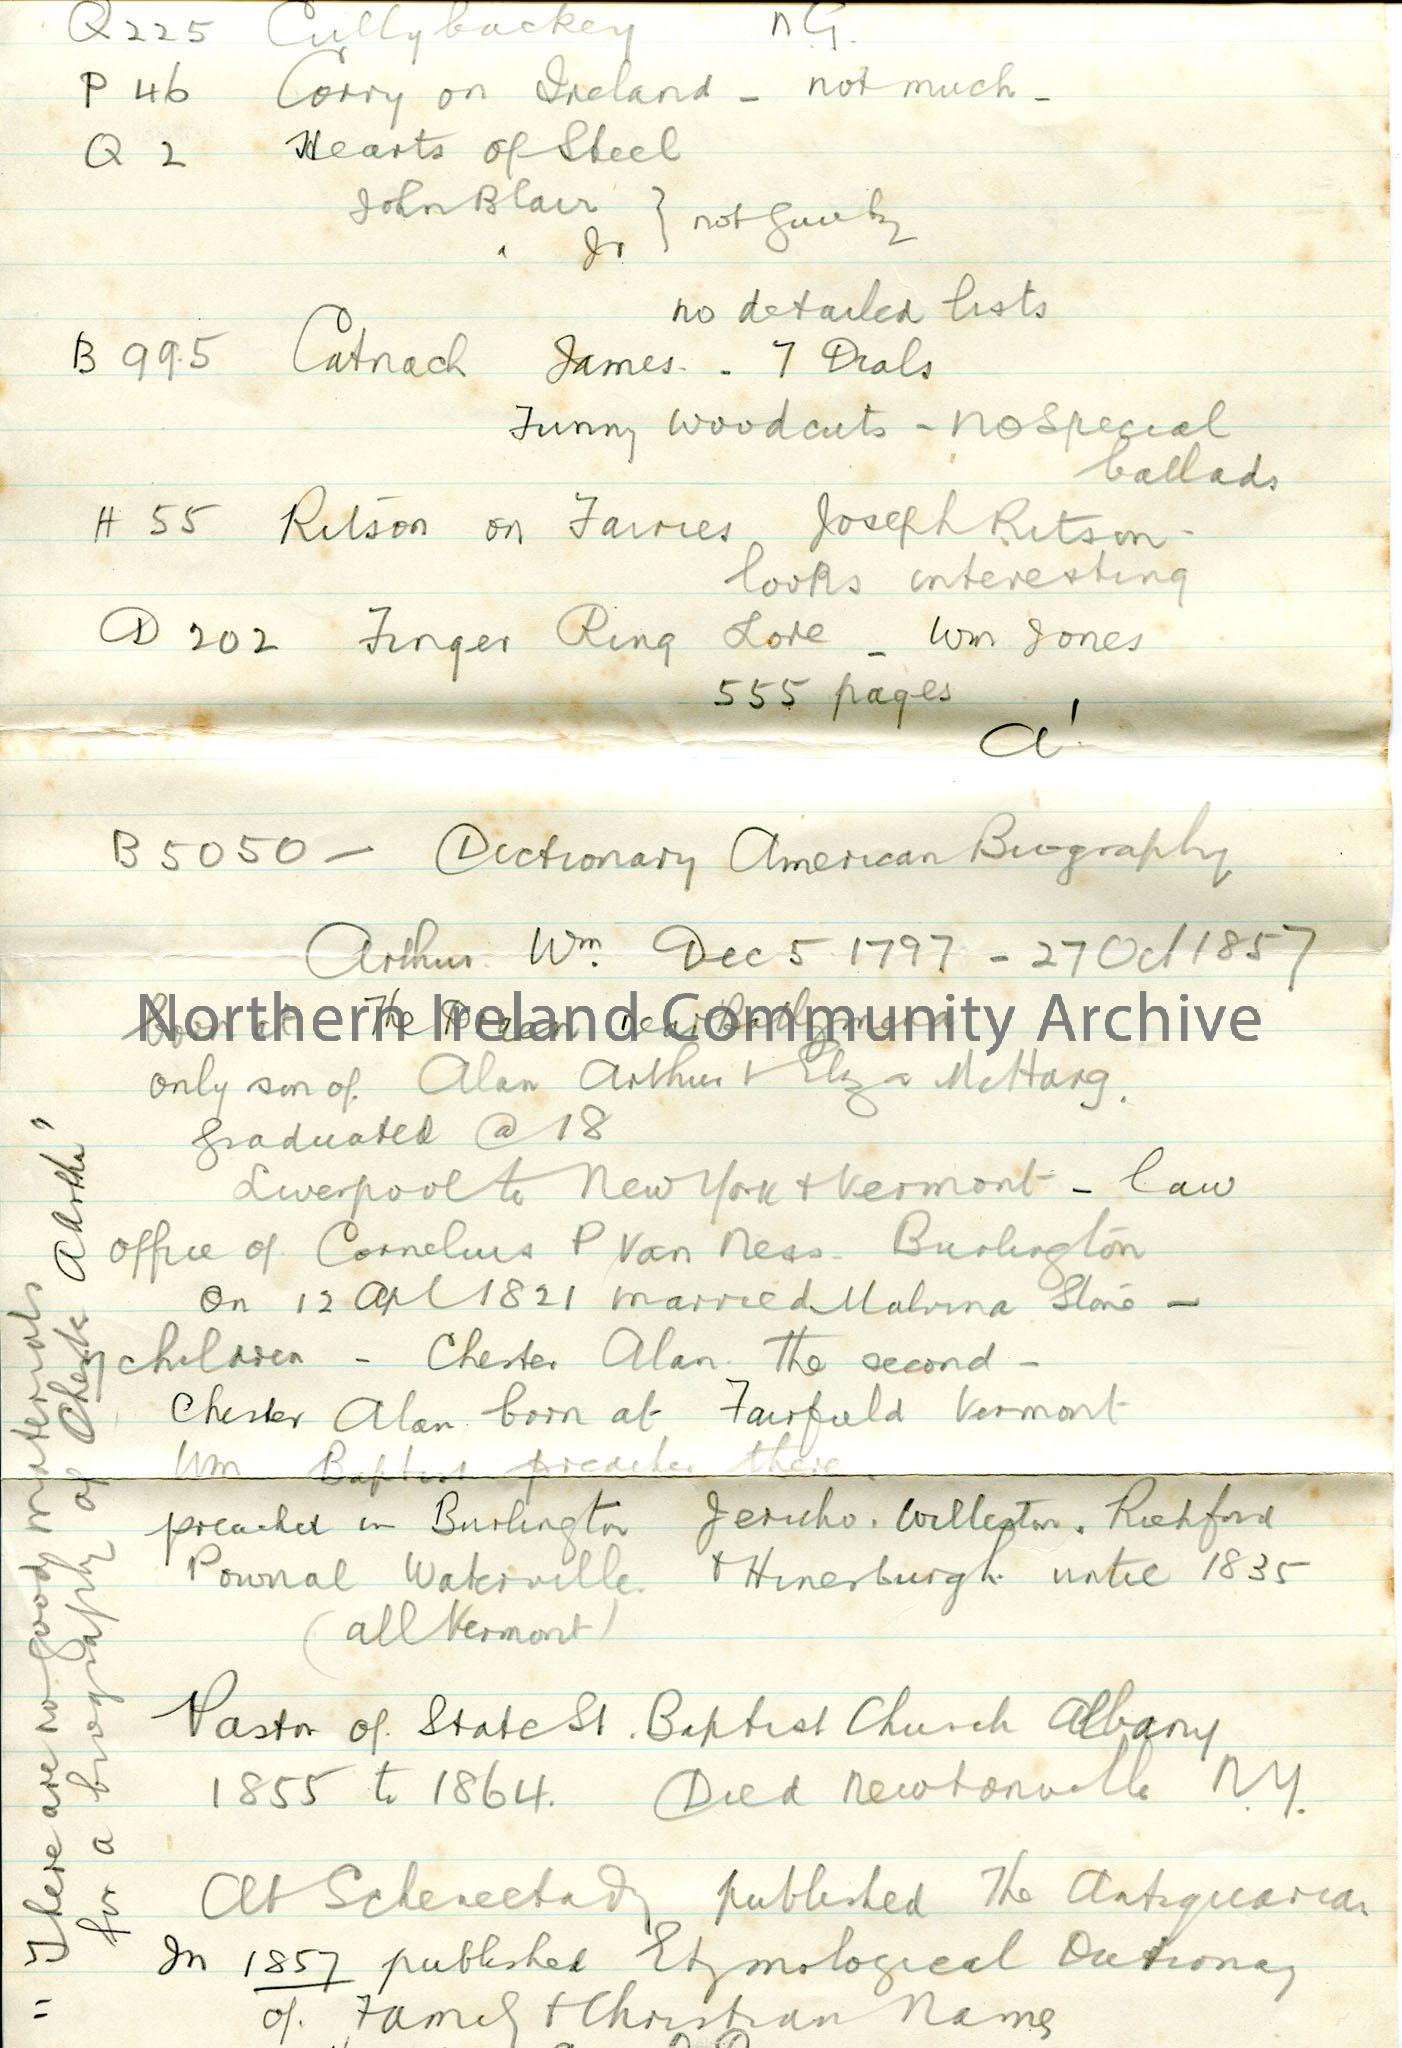 Q 225 Cullybackey n G.
P 46 Corry on Ireland - not much -
Q 2 Hearts of Steel
John Blair } not guilty
" Jr
no detailed lists
B 995 Catnach James. - 7 Dials
Funny woodcuts - no special
ballads
H 55 Ritson on Fairies Joseph Ritson -
looks interesting
D 202 Finger Ring Lore - Wm Jones
555 pages
B 5050 - Dictionary American Biography
Arthur Wm. Dec 5 1797 - 27 Oct 1857
born at The Dreen near Ballymena
Northern Ireland Community Archive
only son of. Alan Arthur + Eliza McHarg.
graduated @ 18
Liverpool to New York + Vermont - law
office of Cornelius P Van Ness. Burlington
On 12 Apl 1821 married Malvina Stone -
children - Chester Alan. the second -
Chester Alan born at Fairfield Vermont
Wm Baptist preacher there.
preached in Burlington Jericho. Williston. Richford
Pownal Waterville. + Hinesburgh. until 1835
(all Vermont)
Pastor of State St. Baptist Church Albany
1855 to 1864. Died Newtonville N.Y.
At Schenectady published The Antiquarian
In 1857 published Etymological Dictionary
of. Family + Christian Names
= "There are no good materials
for a biography of Chester A Arthur"